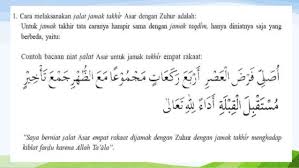 1. Cara melaksanakan salat jamak takhir Asar dengan Zuhur adalah:
Untuk jamak takhir tata caranya hampir sama dengan jamak taqdim, hanya diniatnya saja yang
berbeda, yaitu:
Contoh bacaan niat salat Asar untuk jamak takhir empat rakaat:
أُصَلِّي فَرْضَ الْعَصْرِ أَرْبَعَ رَكَعَاتٍ مَجْمُوْعًا مَعَ الظُّهْرِ جَمْعَ تَأْخِيْرٍ
مُسْتَقْبِلَ الْقِبْلَةِ أَدَاءً لِلّٰهِ تَعَالَى
"Saya berniat salat Asar empat rakaat dijamak dengan Zuhur dengan jamak takhir menghadap
kiblat fardu karena Allah Ta'ala".